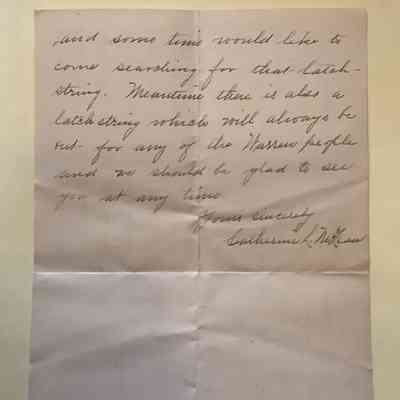 and some time would like to
come searching for that latch-
string. Meantime there is also a
latch string which will always be
out - for any of the Warren people
and we should be glad to see
you at any time
Yours sincerely
Catherine L.